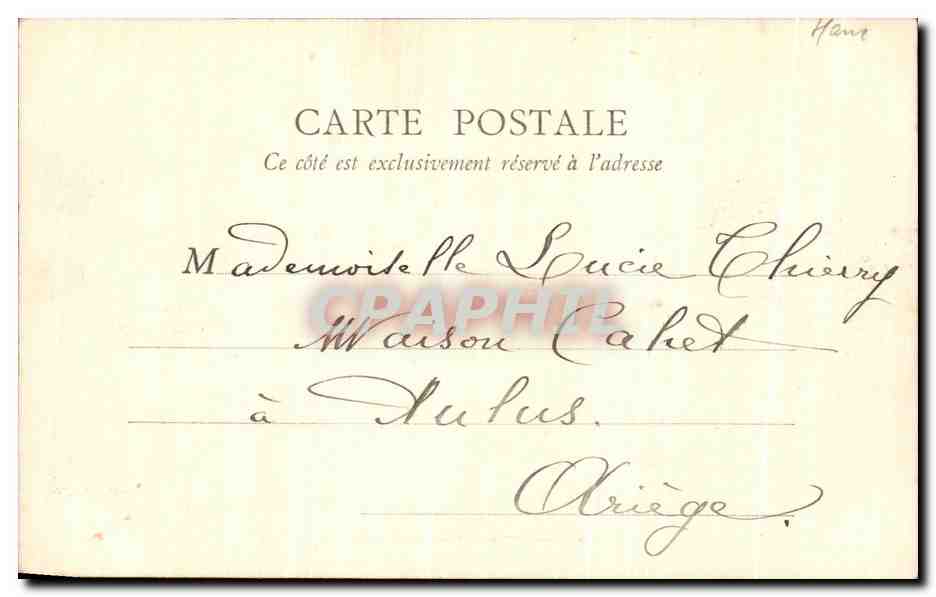 CARTE POSTALE
Ce côté est exclusivement réservé à l'adresse
Mademoiselle Lucie Thierry
CPAPHIL
Maison Cahet
à Aulus.
Ariège.